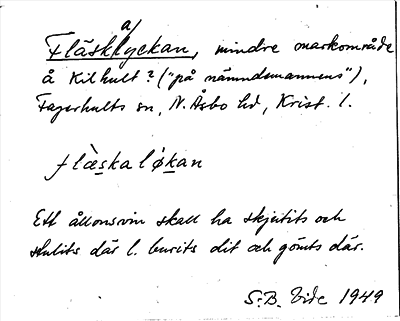 Fläskalyckan, mindre markområde
å Kilhult? ("på nämndsmannens"),
Fagerhults sn, N. Åsbo hd, Krist. l.
flæ̀skalø̀kan
Ett ållonsvin skall ha skjutits och
stulits där l. burits dit och gömts där.
S.B. Vide 1949